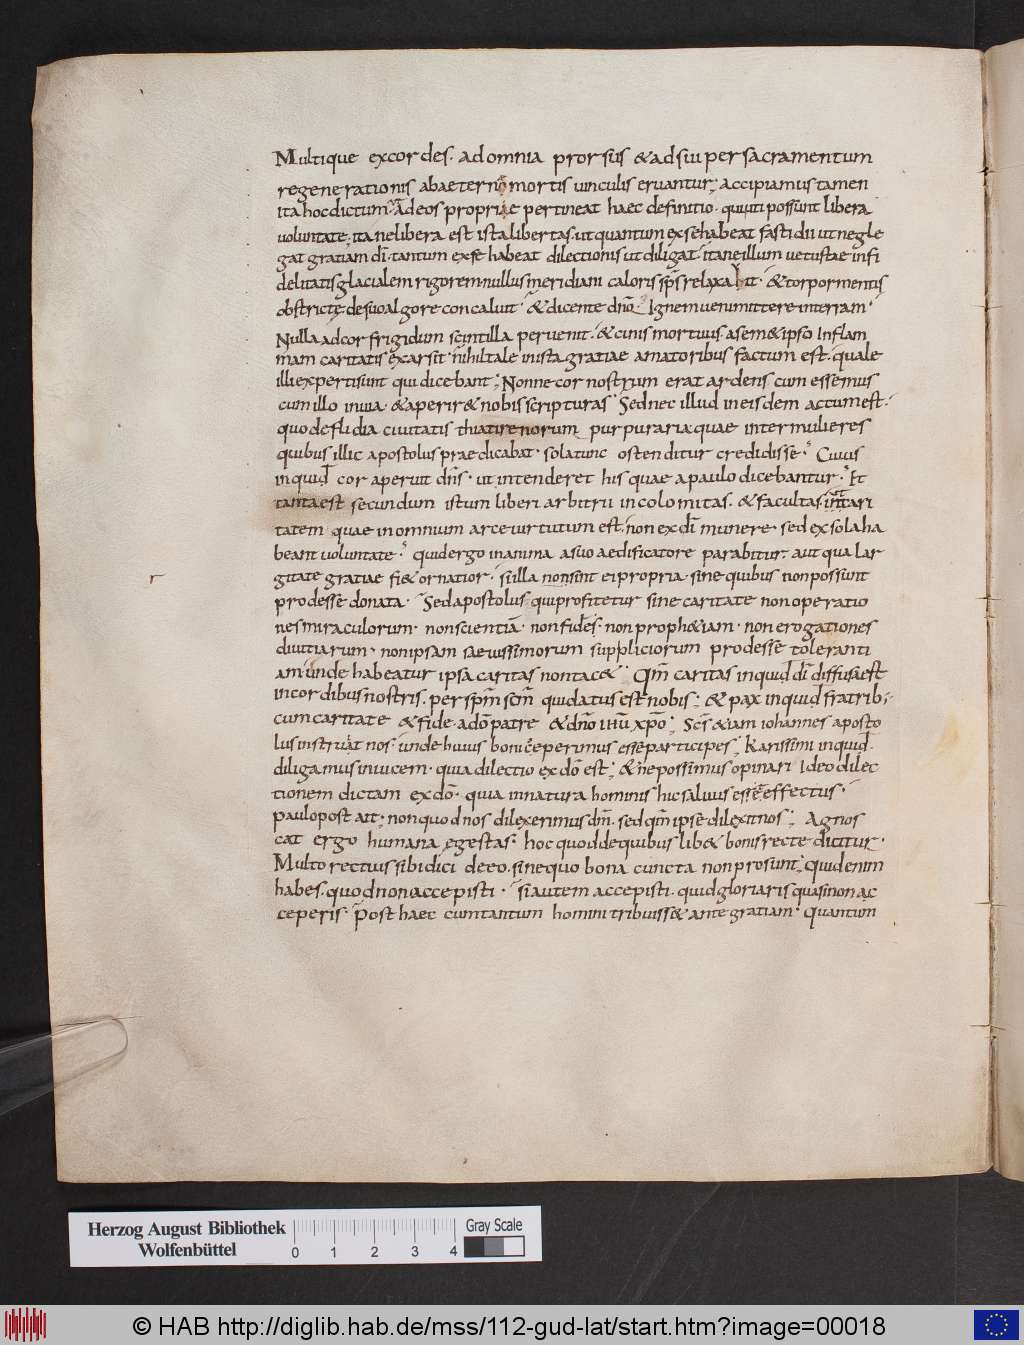 Multique excordes· adomnia prorsus &adsui persacramentum
regenerationis abaeterno mortis uinculis eruantur; accipiamustamen
ita hocdictum· Adeos propriae pertineat haec definitio· quiuti possunt libera
uoluntate· ita nelibera est istalibertas· ut quantum exsehabeat fastidii utnegle
gat gratiam di· tantum exse habeat dilectionis utdiligat· itaneillum uetustae infi
delitatis glacialem rigorem nullus meridiani caloris sps relaxabit· &torpormentis
obstricte desuoalgore concaluit· &dicente dno· Ignem ueni mittere interram·
Nulla adcor frigidum scintilla peruenit· &cinis mortuus asem&ipso Inflam
mam caritatis exarsit· nihiltale inista gratiae amatoribus factum est· quale
illi expertisunt quidicebant; Nonne cor nostrum erat ardens cum essemus
cumillo inuia· &aperir& nobis scripturas· Sed nec illud in eisdem actumest·
quodeflidia ciuitatis thiatirenorum purpuraria quae intermulieres
quibus illic apostolus praedicabat· solatunc ostenditur credidisse· Cuius
inquid cor aperuit dns· ut intenderet his quae apaulo dicebantur· Et
tantaest secundum istum liberi arbitrii incolomitas· &facultas
tatem quae in omnium arce uirtutum est· non ex di munere· sed exsola ha
beant uoluntate· quidergo inanima asuo aedificatore parabitur· aut qua lar
gitate gratiae fi& ornatior· siilla nonsint ei propria· sine quibus nonpossunt
prodesse donata· Sedapostolus quiprofitetur sine caritate non operatio
nes miraculorum· nonscientiam· nonfides· non proph&iam· non erogationes
diuitiarum· nonipsam saeuissimorum suppliciorum prodesse toleranti
am· unde habeatur ipsa caritas nontac&· Qm caritas inquid di diffusaest
incordibus nostris· per spm scm quidatus est nobis; &pax inquid fratrib;
cumcaritate &fide· ado patre &dno ihu xpo; Scs &iam iohannes aposto
lus instruat nos· unde huius boni ceperimus esse participes; Karissimi inquid·
diligamus inuicem· quia dilectio ex do est; &ne possimus opinari Ideo dilec
tionem dictam ex do· quia innatura hominis hic saluus esse effectus·
paulopost ait· nonquod nos dilexerimus dm· sed qm ipse dilexit nos; Agnos
cat ergo humana egestas· hoc quod dequibus lib& bonis recte dicitur·
Multo rectius sibi dici deeo· sinequo bona cuncta non prosunt; quid enim
habes· quod non accepisti· si autem accepisti· quid gloriaris quasi non ac
ceperis· Post haec cumtantum homini tribuiss& ante gratiam· quantum
r
Herzog August Bibliothek
Wolfenbüttel
0 1 2 3 4
Gray Scale
© HAB http://diglib.hab.de/mss/112-gud-lat/start.htm?image=00018